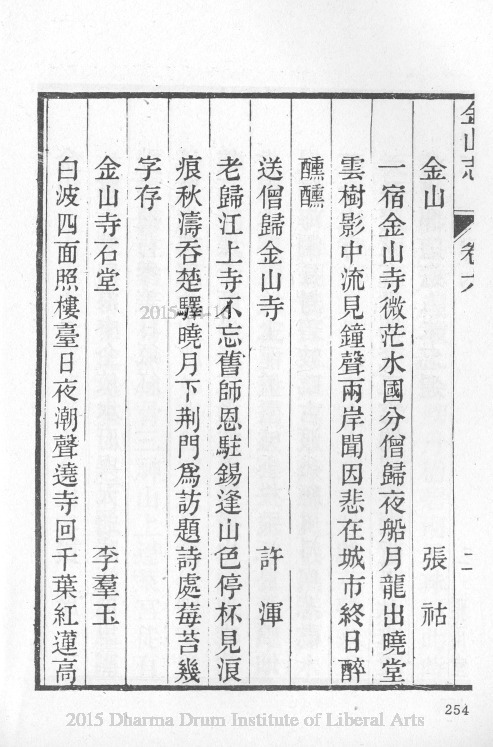 金山志 卷六 二
金山 張祜
一宿金山寺微茫水國分僧歸夜船月龍出曉堂
雲樹影中流見鐘聲兩岸聞因悲在城市終日醉
醺醺
送僧歸金山寺 許渾
老歸江上寺不忘舊師恩駐錫逢山色停杯見浪
痕秋濤吞楚驛曉月下荆門爲訪題詩處莓苔幾
字存
金山寺石堂 李羣玉
白波四面照樓臺日夜潮聲遶寺回千葉紅蓮高
254
2015 Dharma Drum Institute of Liberal Arts